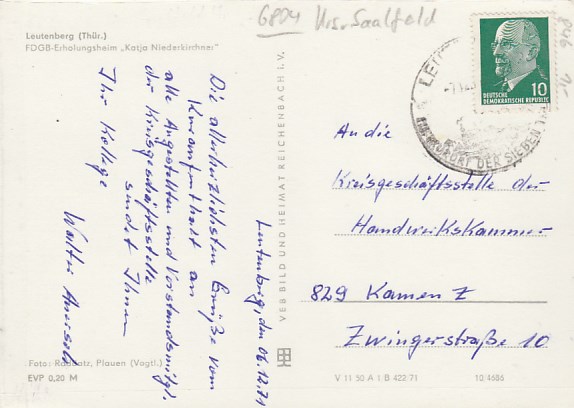 6804 Krs. Saalfeld
Leutenberg (Thür.)
FDGB-Erholungsheim „Katja Niederkirchner"
10
DEUTSCHE
DEMOKRATISCHE REPUBLIK
ORT DER SIEBEN
Leutenberg, den 06.12.71
Die allerherzlichsten Grüße vom
Kuraufenthalt an
alle Angestellten und Vorstandsmitgl.
der Kreisgeschäftsstelle
sendet Ihnen
Ihr Kollege
Walter
An die
Kreisgeschäftsstelle der
Handwerkskammer
829 Kamenz
Zwingerstraße 10
VEB BILD UND HEIMAT REICHENBACH I. V.
Foto: Plauen (Vogtl.)
EVP 0,20 M
V 11 50 A 1 B 422/71
10/4686